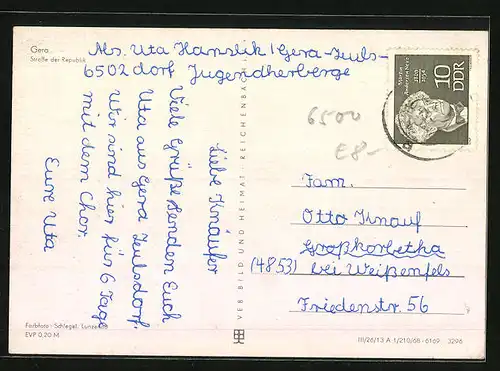 Gera
Straße der Republik
Abs. Uta Hanslik, Gera-Zeuls-
6502 dorf Jugendherberge
Liebe Knäufer
Viele Grüße senden Euch
Uta aus Gera Zeulsdorf.
Wir sind hier für 6 Tage
mit dem Chor.
Eure Uta
Farbfoto: Schlegel/
EVP 0,20 M
VEB BILD UND HEIMAT · REICHENBACH
10
DDR
6500
E8-
Fam.
Otto Knauf
Großkorbetha
(4853) bei Weißenfels
Friedenstr. 56
III/26/13 A 1/210/68-6169 3296